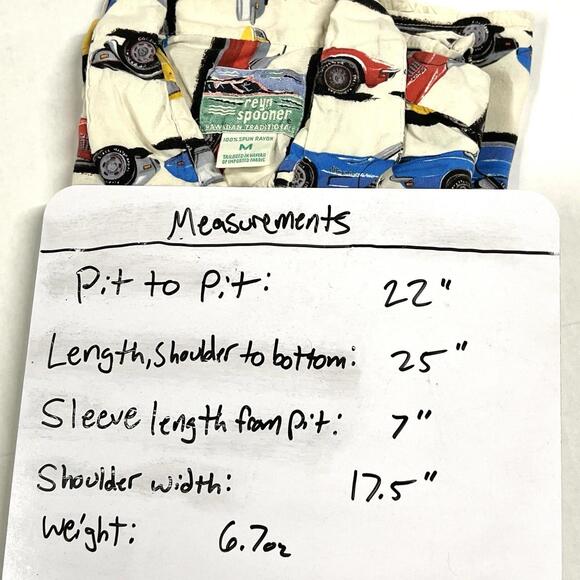 reyn
spooner
HAWAIIAN TRADITIONAL
100% SPUN RAYON
M
TAILORED IN HAWAII
OF IMPORTED FABRIC
Measurements
Pit to Pit: 22"
Length, Shoulder to bottom: 25"
Sleeve length from pit: 7"
Shoulder width: 17.5"
Weight: 6.7oz